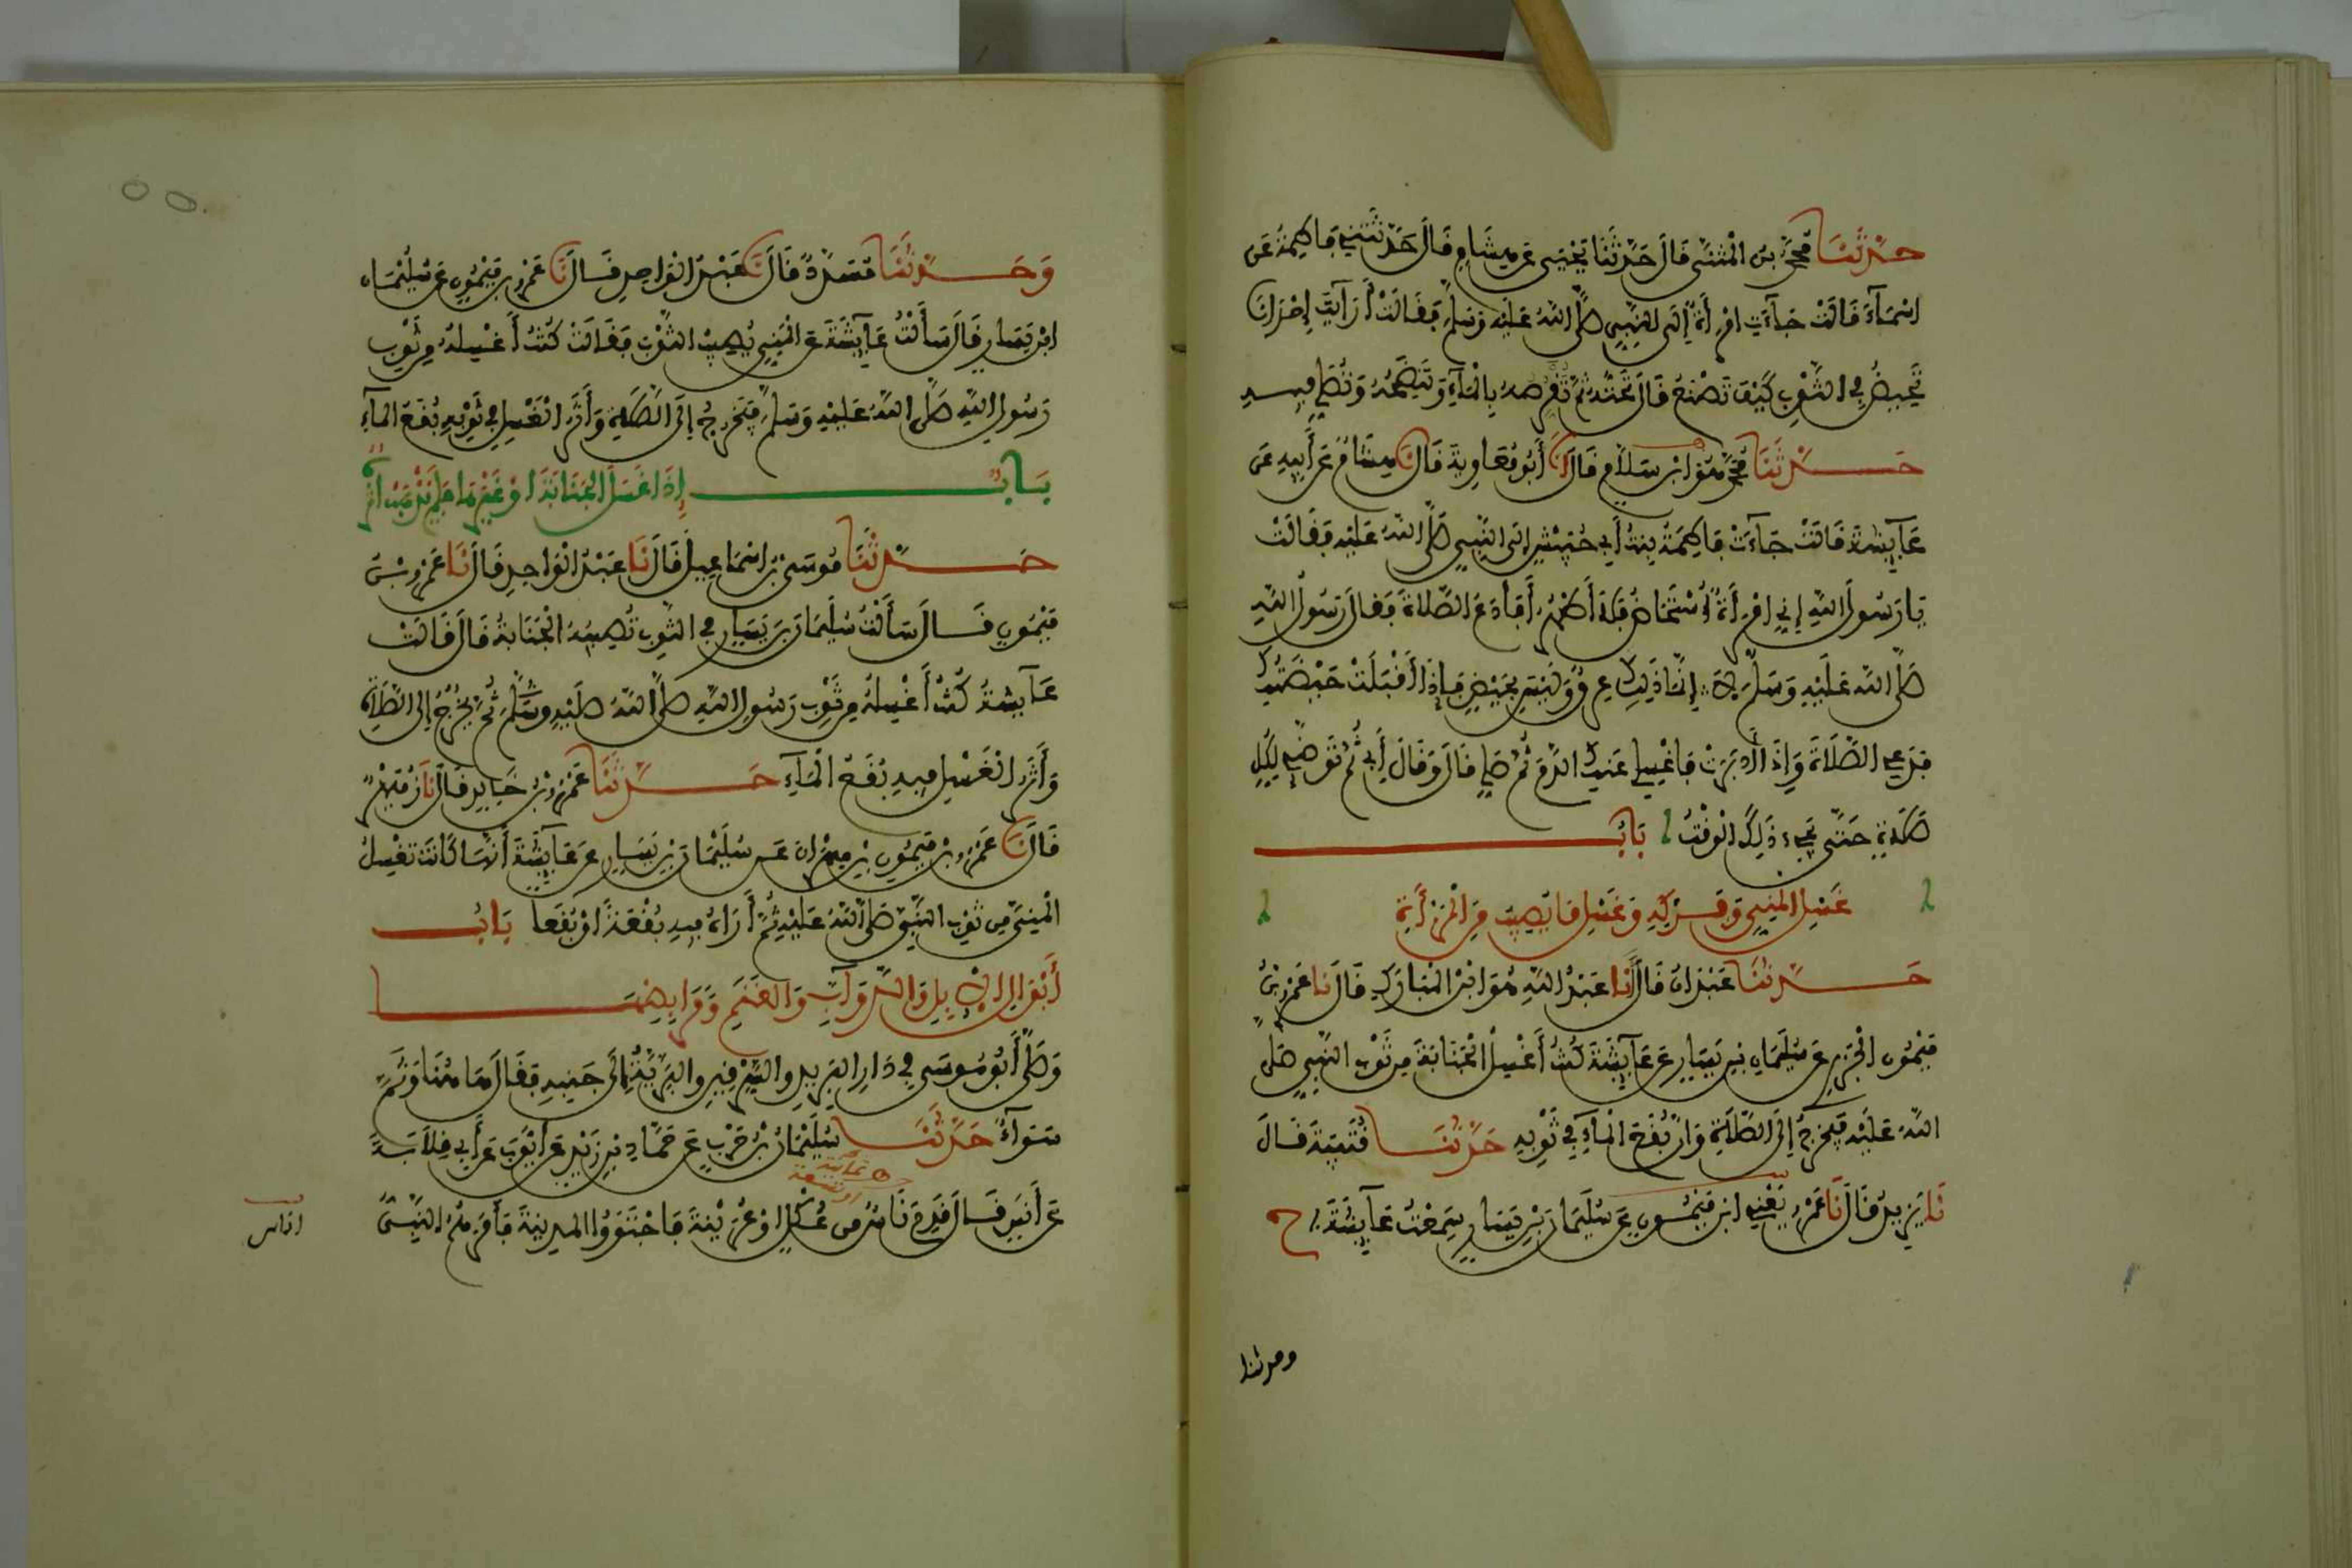 حدثنا محمد بن المثنى قال حدثنا يحيى عن هشام قال حدثتني فاطمة عن
اسماء قالت جاءت امرأة إلى النبي صلى الله عليه وسلم فقالت أرأيت إحدانا
تحيض في الثوب كيف تصنع قال تحته ثم تقرصه بالماء وتنضحه وتصلي فيه
حدثنا محمد هو ابن سلام قال نا أبو معاوية قال نا هشام عن أبيه عن
عائشة قالت جاءت فاطمة بنت أبي حبيش الى النبي صلى الله عليه فقالت
يا رسول الله إني امرأة أستحاض فلا أطهر أفأدع الصلاة فقال رسول الله
صلى الله عليه وسلم لا إنما ذلك عرق وليس بحيض فإذا أقبلت حيضتك
فدعي الصلاة وإذا أدبرت فاغسلي عنك الدم ثم صلي قال وقال أبي ثم توضئي لكل
صلاة حتى يجيء ذلك الوقت باب
غسل المني وفركه وغسل ما يصيب من المرأة
حدثنا عبدان قال نا عبد الله هو ابن المبارك قال نا عمرو بن
ميمون الجزري عن سليمان بن يسار عن عائشة كنت أغسل الجنابة من ثوب النبي صلى
الله عليه فيخرج إلى الصلاة وان بقع الماء في ثوبه حدثنا قتيبة قال
نا يزيد قال نا عمرو يعني ابن ميمون عن سليمان بن يسار سمعت عائشة ح
وحدثنا
وحدثنا مسدد قال نا عبد الواحد قال نا عمرو بن ميمون عن سليمان
ابن يسار قال سألت عائشة عن المني يصيب الثوب فقالت كنت أغسله من ثوب
رسول الله صلى الله عليه وسلم فيخرج إلى الصلاة وأثر الغسل في ثوبه بقع الماء
باب إذا غسل الجنابة او غيرها فلم يذهب اثره
حدثنا موسى بن اسماعيل قال نا عبد الواحد قال نا عمرو بن
ميمون قال سألت سليمان بن يسار في الثوب تصيبه الجنابة قال قالت
عائشة كنت أغسله من ثوب رسول الله صلى الله عليه وسلم ثم يخرج إلى الصلاة
وأثر الغسل فيه بقع الماء حدثنا عمرو بن خالد قال نا زهير
قال نا عمرو بن ميمون بن مهران عن سليمان بن يسار عن عائشة أنها كانت تغسل
المني من ثوب النبي صلى الله عليه ثم أراه فيه بقعة او بقعا باب
أبوال الإبل والدواب والغنم ومرابضها
وصلى أبو موسى في دار البريد والسرقين والبرية إلى جنبه فقال هاهنا وثم
سواء حدثنا سليمان بن حرب عن حماد بن زيد عن أيوب عن أبي قلابة
ثمانية
او تسعة
عن أنس قال قدم ناس من عكل او عرينة فاجتووا المدينة فأمرهم النبي
اناس